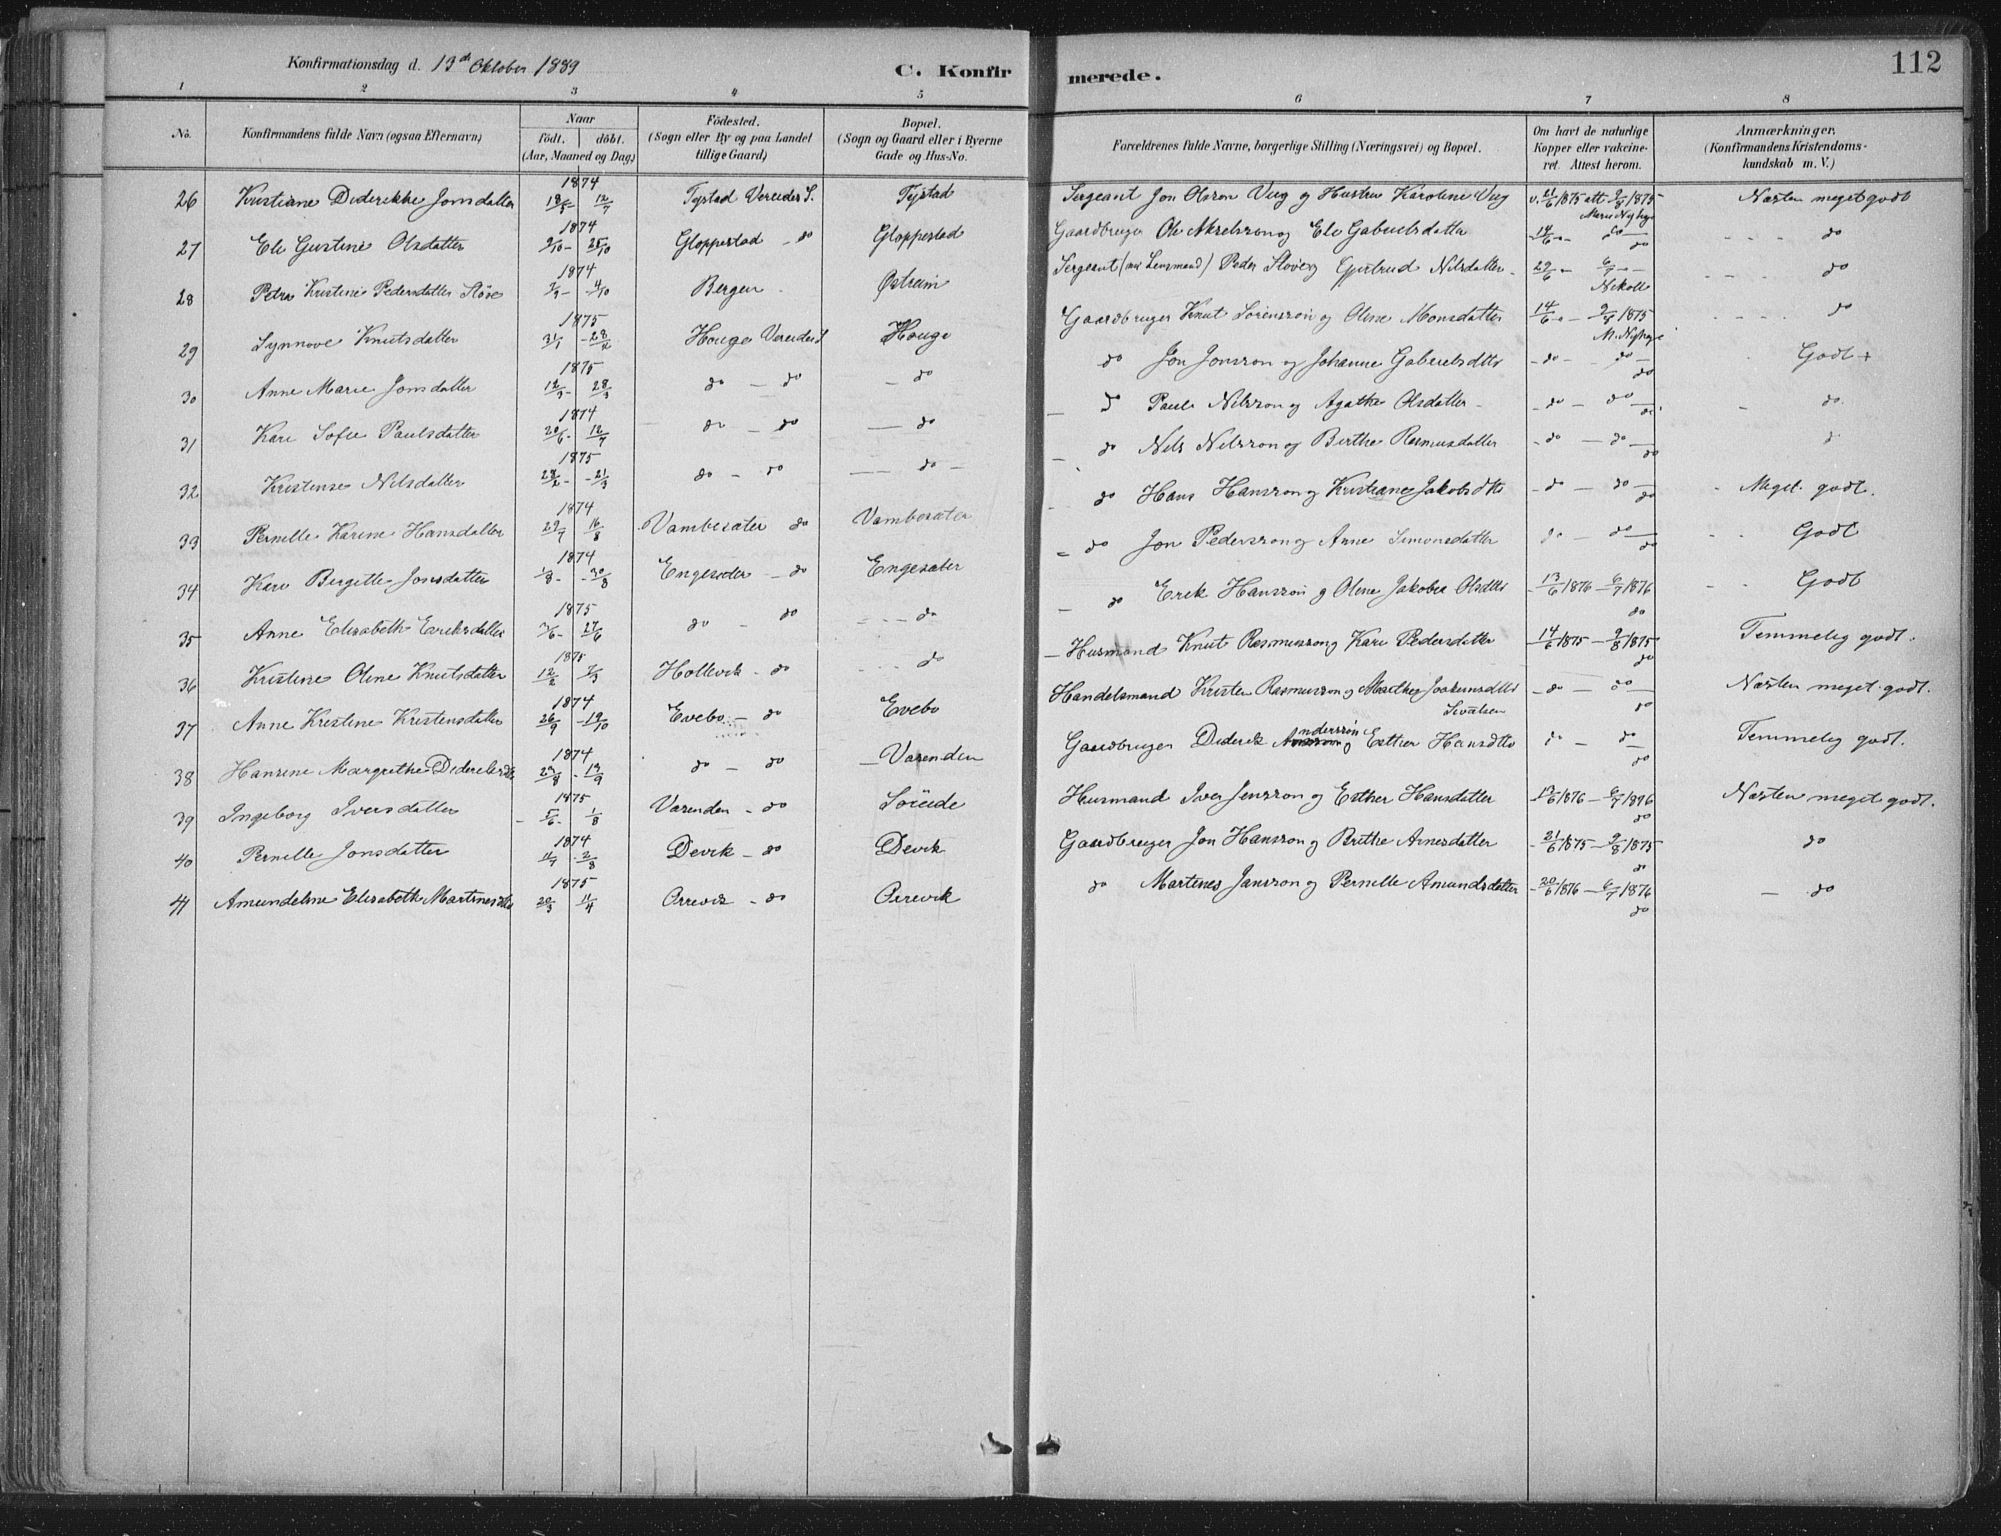 Konfirmationsdag d. 13de Oktober 1889
C. Konfirmerede.
112
1 2 3 4 5 6 7 8
No. Konfirmandens fulde Navn (ogsaa Efternavn) Naar födt. döbt. (Aar, Maaned og Dag) Födested. (Sogn eller By og paa Landet tillige Gaard) Bopæl. (Sogn og Gaard eller i Byerne Gade og Hus-No. Forældrenes fulde Navne, borgerlige Stilling (Næringsvei) og Bopæl. Om havt de naturlige Kopper eller vakcineret. Attest herom. Anmærkninger. (Konfirmandens Kristendomskundskab m. V.)
26 Kristiane Diderikke Jonsdatter 1874 12/7 Tystad Vereides S. Tystad Sergeant Jon Olsson Vug og Hustru Karoline Vug v. 21/6 1875 att 9/8 1875 Næsten meget godt
27 Ele Gustine Olsdatter 1874 9/10 - 25/10 Gloppestad - do Gloppestad Gaardbruger Ole Akselsson og Ele Gabrielsdatter 14/6 - do - do do
28 Petra Kristine Pedersdatter Støve 1874 - 4/10 Bergen Østreim Sergeant Peder Støve og Gjertrud Nilsdatter 29/6 - 6/7 - do
29 Synnove Knutsdatter 1875 31/1 - 28/2 Houge Vereides S Houge Gaardbruger Knut Sørensson og Oline Monsdatter 14/6 - 1875 M. Nyhage do
30 Anne Marie Jonsdatter 1875 12/3 28/3 do - do - do do Jon Jonsson og Johanne Gabrielsdtr - do - do - do Godt +
31 Kari Sofie Paulsdatter 1874 20/6 - 12/7 do - do - do - do Paul Nilsson og Agathe Olsdatter - do - do - do - do
32 Kristense Nilsdatter 1875 - 21/3 do - do - do - - do Nils Nilsson og Birthe Rasmusdatter - do - do - do do
33 Pernille Karine Hansdatter 1874 29/7 16/8 Vambesæter do Vambesæter do Hans Hansson og Kristiane Jakobsdtr - do - do - do Meget godt.
34 Kari Bergitte Jonsdatter 1874 1/8 - 30/8 Engesæter - do Engesæter - do Jon Pedersson og Anne Simonsdatter do - do - do Godt
35 Anne Elisabeth Eriksdatter 1875 27/6 do - do - do - do Erik Hansson og Oline Jakobea Olsdtr - 13/6 1876 - 6/7 1876 do Godt
36 Kristine Oline Knutsdatter 1875 12/2 7/3 Hollevik - do do - Husmand Knut Rasmusson og Kari Pedersdatter 14/6 1875 - 9/8 1875 do Temmelig godt.
37 Anne Kristine Kristensdatter 1874 26/9 - 19/10 Evebø - do Evebø Handelsmand Kristen Rasmusson og Marthe Joakimsdtr Sivalsen - do - do - do Næsten meget godt.
38 Hansine Margrethe Dideriksdtr 1874 23/8 - 13/9 do - do - Varenden Gaardbruger Diderik Andersson og Esther Hansdtr do - do - do Temmelig godt.
39 Ingeborg Iversdatter 1875 - 5/6 - 1/8 Varenden - do Söreide Husmand Iver Jensson og Esther Hansdatter - 13/6 1876 - 6/7 1876 do Næsten meget godt.
40 Pernille Jonsdatter 1874 11/7 - 2/8 Devik - do Devik Gaardbruger Jon Hansson og Brithe Arnesdatter - 21/6 1875 - 9/8 1875 do do
41 Amundeline Elisabeth Martinesdtr 1875 20/3 11/4 Orrevik - do Orrevik do Martines Jansson og Pernille Amundsdatter - 20/6 1876 - 6/7 1876 do - do